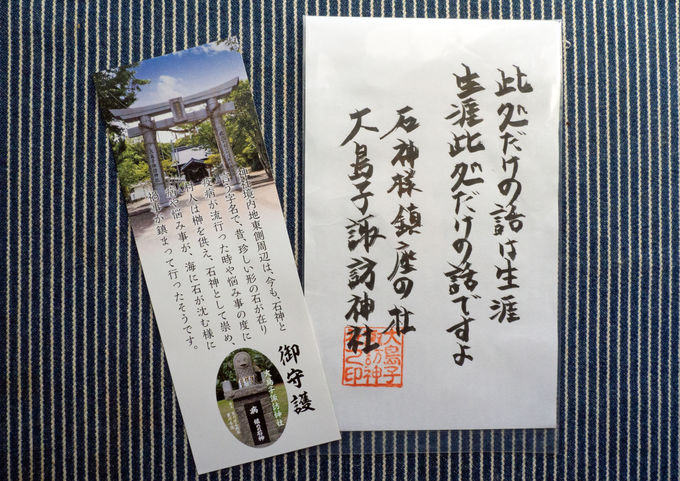 此処だけの話は生涯
生涯此処だけの話ですよ
石神様鎮座の社
大島子諏訪神社
大島子
諏訪神
社之印
御神社境内地東側周辺は、今も、石神と
いう字名で、昔、珍しい形の石が在り
疫病が流行った時や悩み事の度に
村人は榊を供え、石神として崇め、
病や悩み事が、海に石が沈む様に
事が鎮まって行ったそうです。
御守護
大島子諏訪神社
病
根の石神